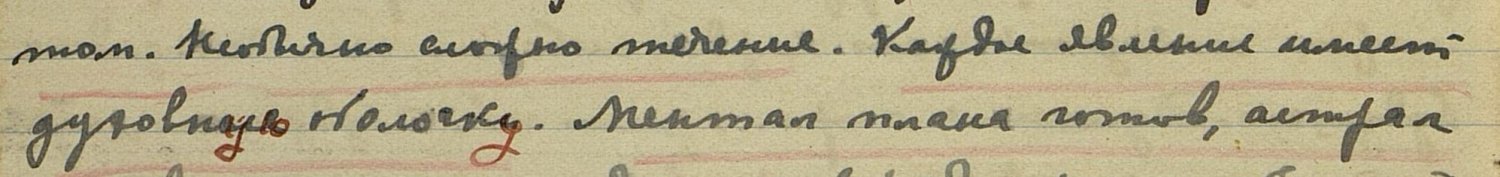 том. Необычно сложно течение. Каждое явление имеет
духовную оболочку. Ментал плана готов, астрал